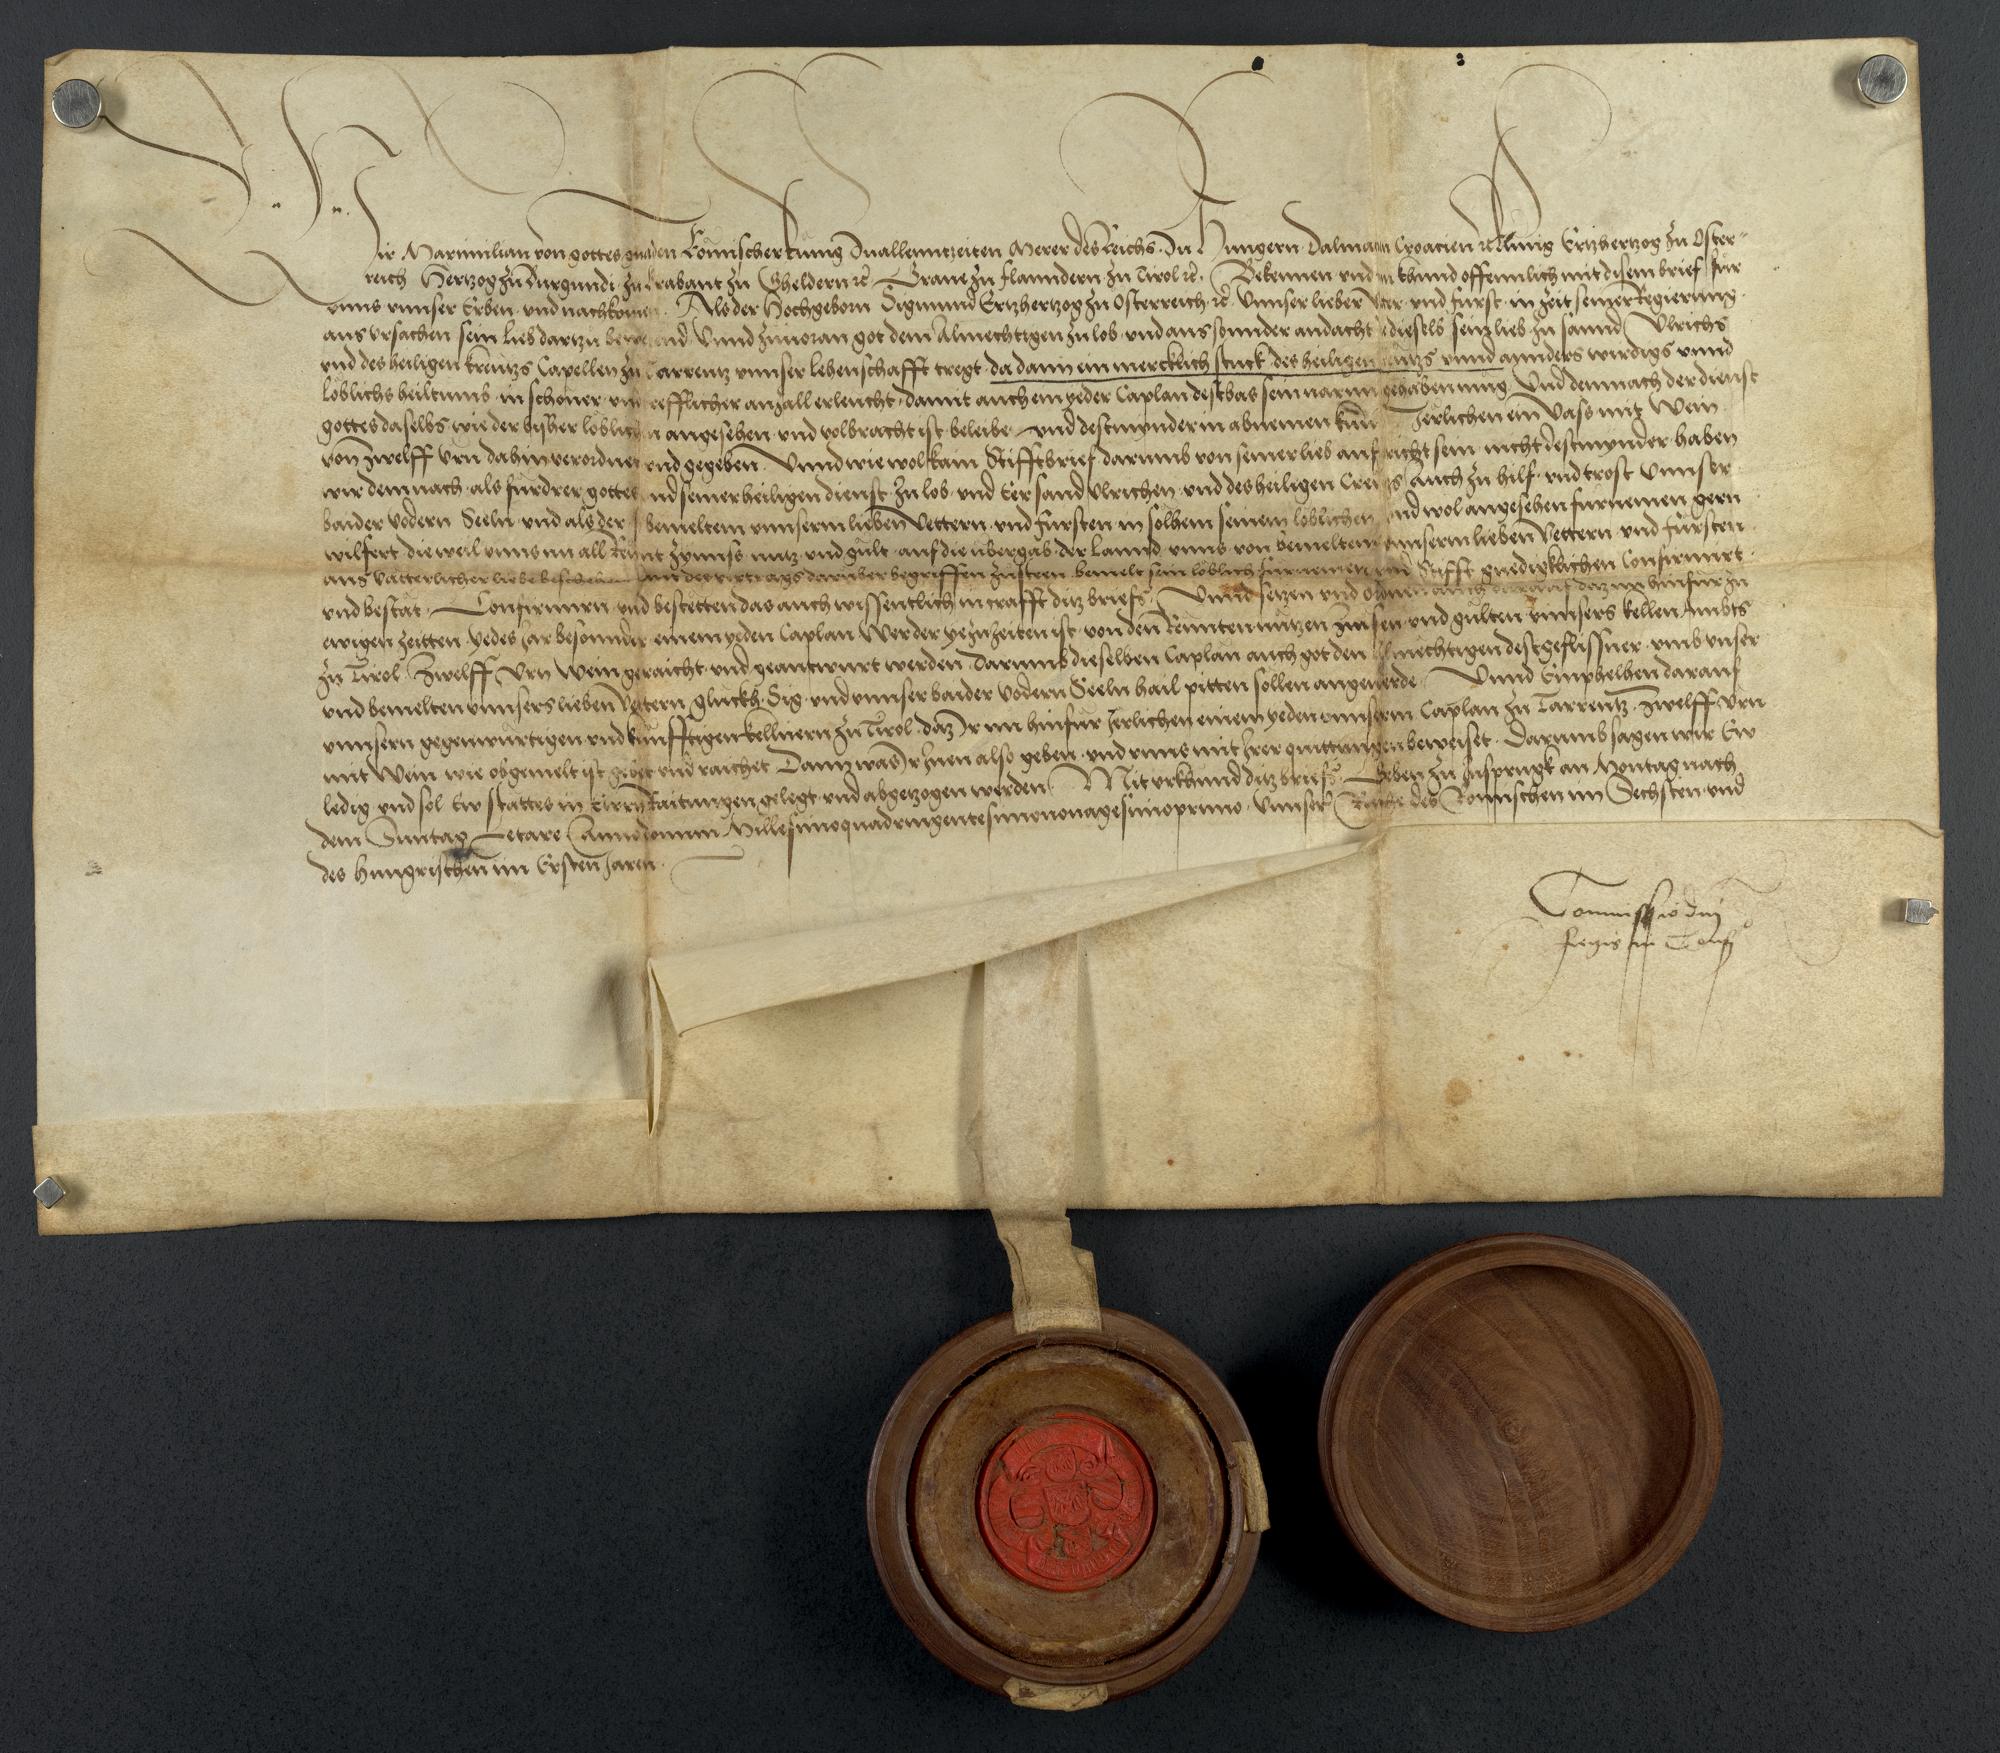 Wir Maximilian von gottes gnaden Römischer kunig zuallenntzeiten Merer des Reichs. Zu Hungern. Dalmatien Croatien rc Kunig Ertzhertzog zu Oster-
reich Hertzog zu Burgundi. zu Brabant zu Gheldern rc Graue zu Flanndern. zu Tirol rc. Bekennen vnd tun khund offennlich mit disem brief für
vnns vnnser Erben. vnd nachkomen. Als der Hochgeborn Sigmund Ertzhertzog zu Osterreich rc. Vnnser lieber Vetter. vnd fürst. in zeit seiner Regierung.
aus vrsachen sein lieb dartzu bewegend Vnnd zuuoran got dem Almechtigen zu lob. vnd aus sonnder andacht dieselb sein lieb zu sannd Vlrichs
vnd des heiligen kreutzs Capellen zu Tarrentz vnnser lehenschafft tregt. da dann ein mercklich stuck des heiligen kreutzs vnnd annders wirdigs vnnd
loblichs heiltumb. in schöner. vnd trefflicher antzall erleucht. damit auch ein yeder Caplan destbas sein narung gehaben mug. Vnd demnach der dienst
gottes daselbs wie der bisher löblichen angesehen. vnd volbracht ist. beleibe. vnd destmynder in abnemen kum Jerlichen ein Vass mit Wein
von Zwelff Vrn dahin verordnet vnd gegeben. Vnnd wie wol kain Stifftbrief. darumb von seiner lieb aufgericht sein. nichtdestmynder haben
wir demnach. als fürdrer gottes vnd seiner heiligen dienst. Zu lob. vnd Eer sand Vlrichen. vnd des heiligen Creutzs Auch zu hilf. vnd trost Vnnser
baider vodern Seeln. vnd als der bemeltem vnnserm lieben Vettern. vnd fürsten in solhem seinem löblichen vnd wol angesehen furnemen gern
wilfert die weil vnns nu all Rennt zynnss nutz vnd gült. auf die übergab der Lannd vnns von bemeltem vnnserm lieben Vettern vnd fürsten
aus vätterlicher liebe beschehen mit des vertrags darüber begriffen zusteen. bemelt sein löblich fürnemen vnd Stifft gnedigklichen Confirmirt.
vnd bestät. Confirmirn vnd bestetten das auch wissentlich in crafft ditz briefs. Vnnd setzen vnd ordnen auch darauf daz nu hinfür zu
ewigen zeitten yedes Jar besonnder einem yeden Caplan Wer der ye zuzeiten ist. von den Rennten nützen zinsen. vnd gülten vnnsers kellenambts
zu Tirol. Zwelff Vrn Wein geraicht. vnd geantwurt werden. Darumb dieselben Caplan auch got den Almechtigen dest geflissner. vmb vnser
vnd bemelten vnnsers lieben Vettern glückh. Sig. vnd vnnser baider vodern Seeln hail pitten sollen angeuerde. Vnnd Emphelhen darauf
vnnsern gegenwürtigen. vnd künfftigen kellnern zu Tirol. daz Ir nu hinfur Jerlichen einem yeden vnnserm Caplan zu Tarrentz. Zwelff Vrn
mit Wein wie obgemelt ist gebet vnd raichet Dann was Ir Inen also geben. vnd vnns mit Irer quittungen beweiset. Darumb sagen wir Ew
ledig vnd sol Ew stattes in Ewrn Raitungen gelegt. vnd abgetzogen werden. Mit vrkhund ditz briefs. Geben zu Insprugk an Montag nach
dem Suntag Letare Annodomini Millesimoquadringentesimononagesimoprimo. Vnnser Reiche des Römischen im Sechsten. vnd
des Hungrischen im Ersten Jaren.
Commissio dni
Regis in Cons